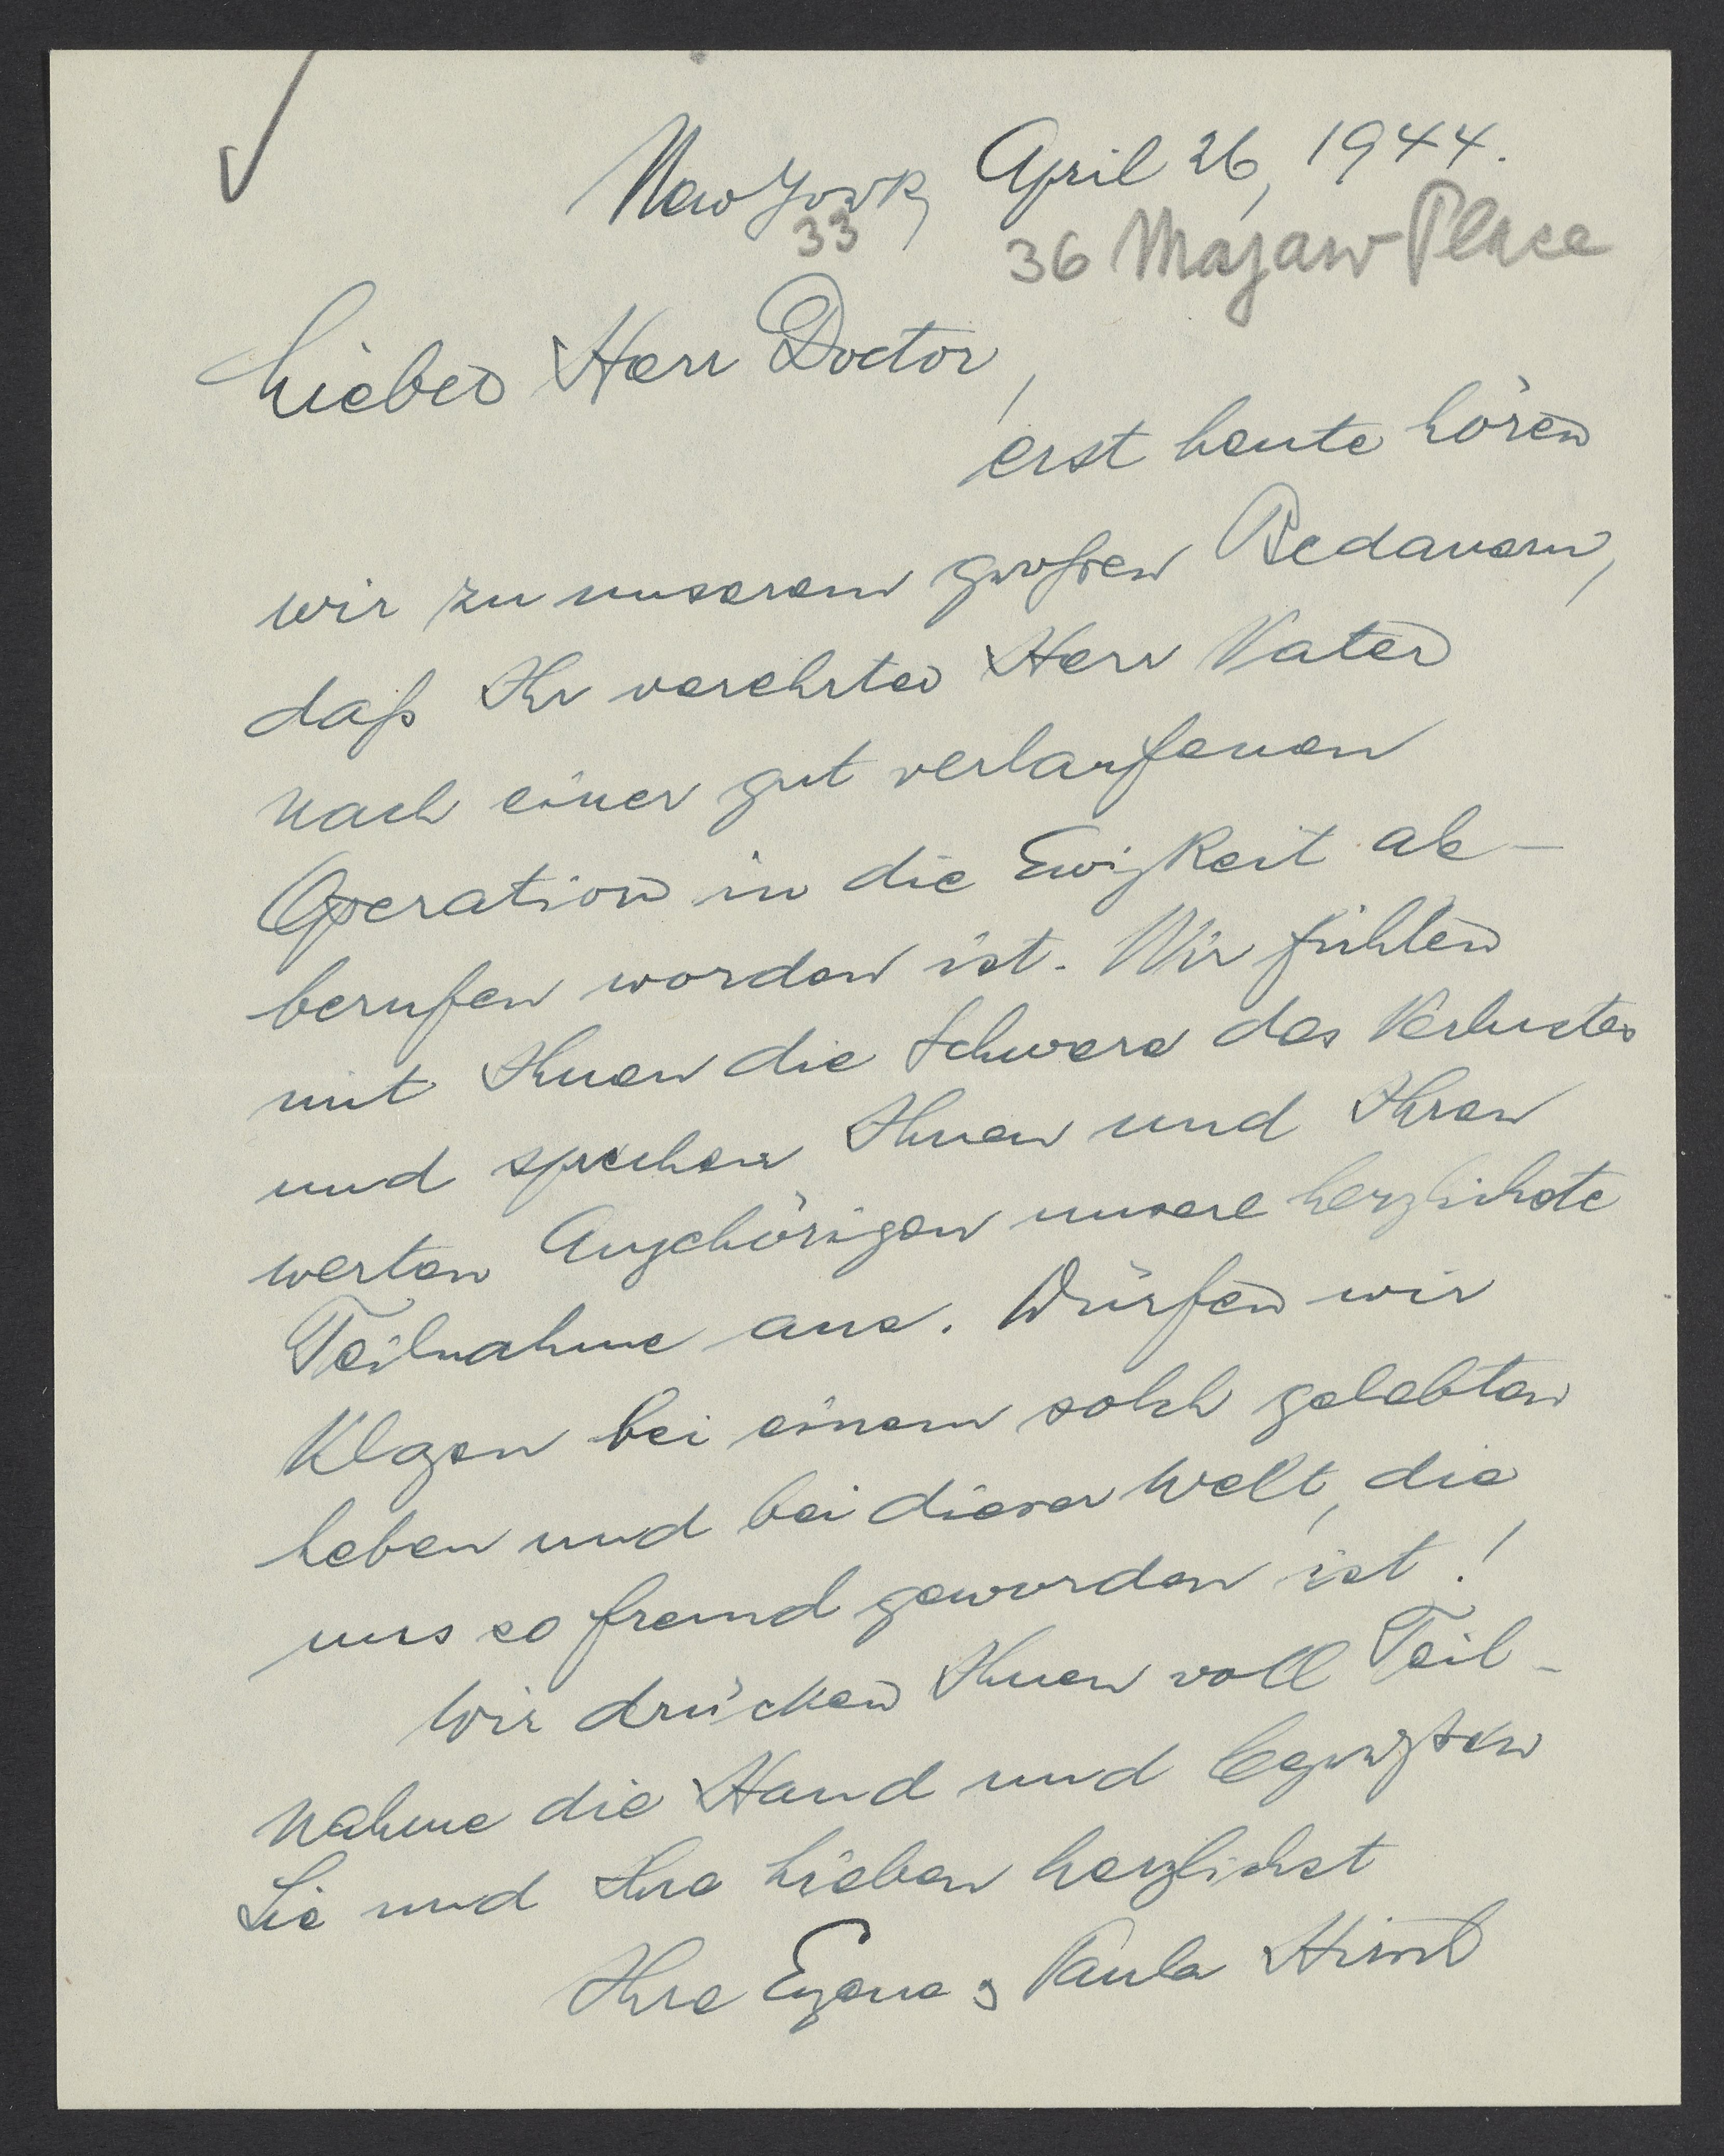 New York, April 26, 1944.
33 36 Magaw Place
Lieber Herr Doctor,
erst heute hören
wir zu unserem großen Bedauern,
daß Ihr verehrter Herr Vater
nach einer gut verlaufenen
Operation in die Ewigkeit ab-
berufen worden ist. Wir fühlen
mit Ihnen die Schwere des Verlustes
und sprechen Ihnen und Ihren
werten Angehörigen unsere herzlichste
Teilnahme aus. Dürfen wir
klagen bei einem solch gelebten
Leben und bei dieser Welt, die
uns so fremd geworden ist!
Wir drücken Ihnen voll Teil-
nahme die Hand und begrüßen
Sie und Ihre Lieben herzlichst
Ihre Eugene & Paula